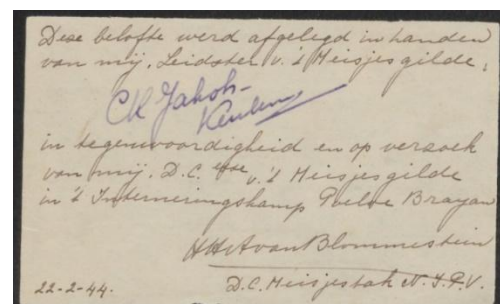 Deze belofte werd afgelegd in handen
van mij, Leidster v. 't Meisjesgilde,
CK Jakob-
Keulen
in tegenwoordigheid en op verzoek
van mij. D.C. v. 't Meisjesgilde
in 't Interneringskamp Poeloe Brayan
HHA van Blommestein
D.C. Meisjestak N.I.P.V.
22-2-44.